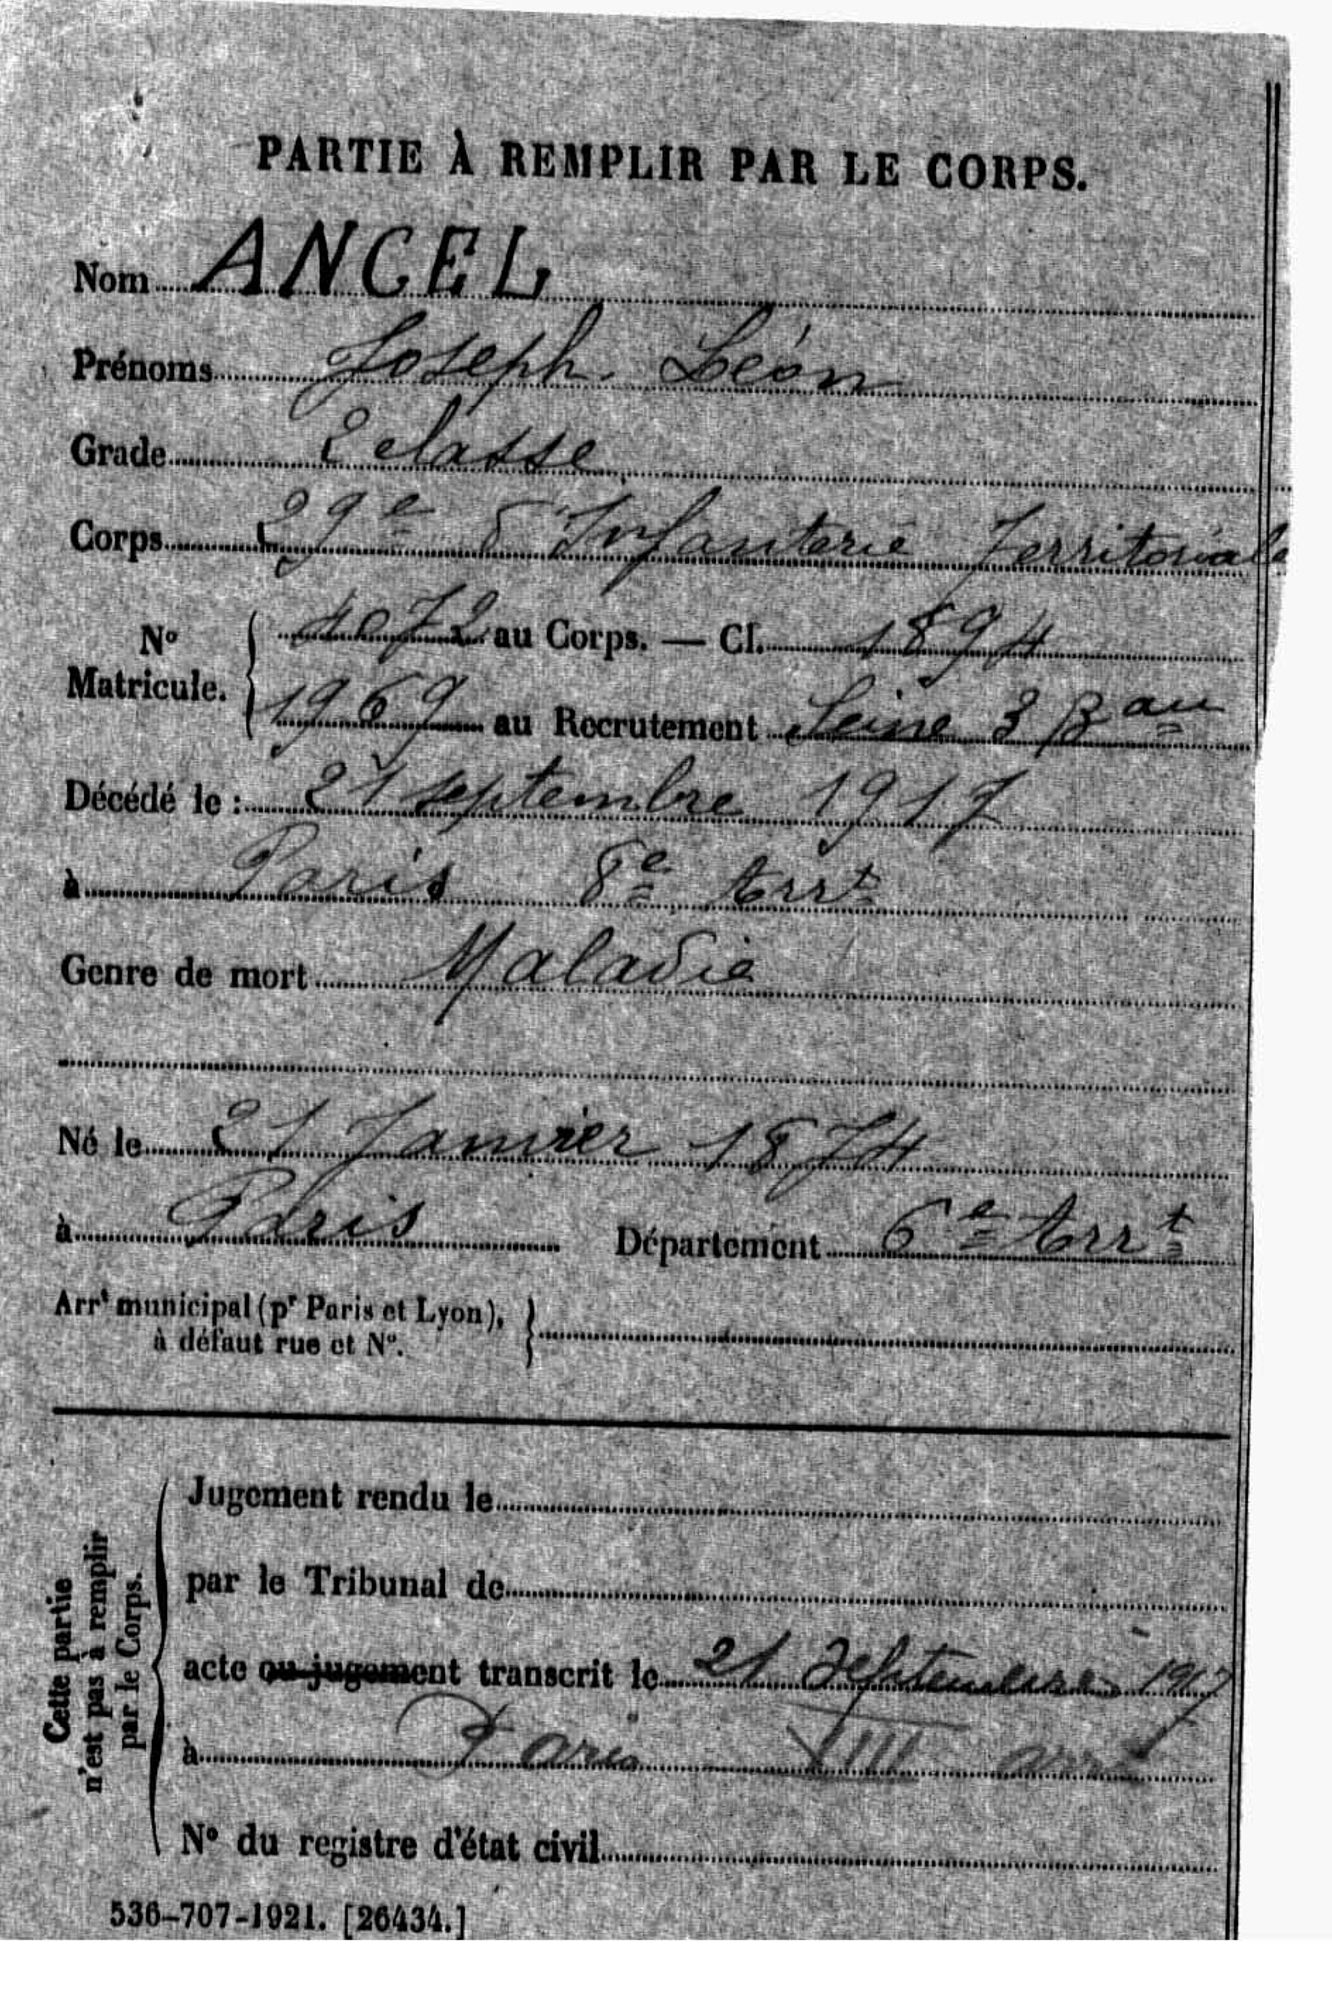 PARTIE À REMPLIR PAR LE CORPS.
Nom ANCEL
Prénoms Joseph Léon
Grade 2 classe
Corps 29e d'Infanterie Territoriale
No Matricule. { 4072 au Corps. — Cl. 1894
1969 au Recrutement Seine 3 Bau
Décédé le : 21 septembre 1917
à Paris 8e Arrt
Genre de mort Maladie
Né le 21 Janvier 1874
à Paris Département 6e Arrt
Arrt municipal (pr Paris et Lyon), à défaut rue et No. }
Cette partie n'est pas à remplir par le Corps.
Jugement rendu le
par le Tribunal de
acte ou jugement transcrit le 21 Septembre 1917
à Paris VIII arrt
No du registre d'état civil
536-707-1921. [26434.]